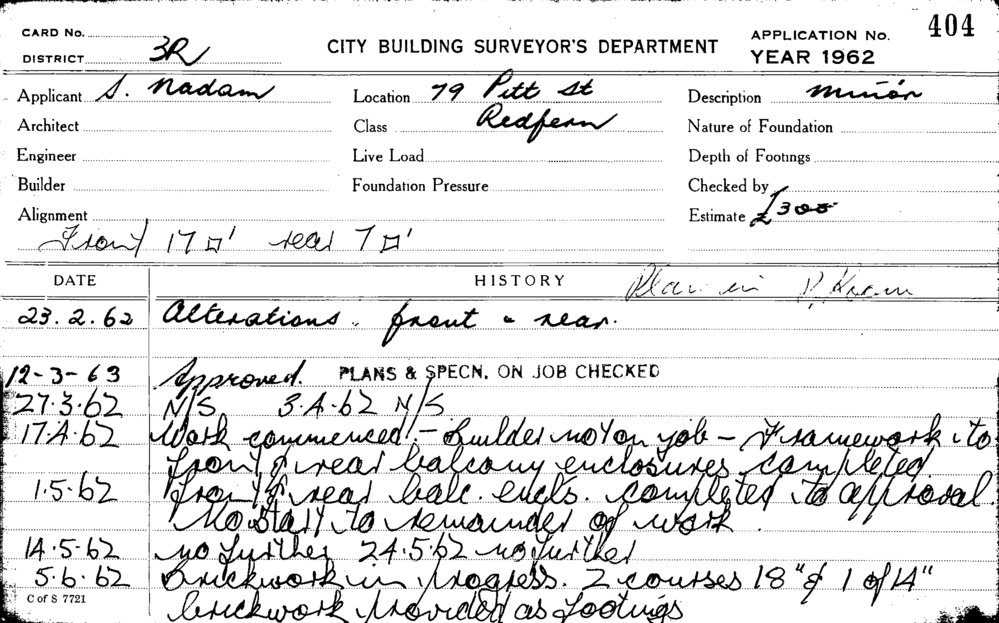 404
CARD No.
DISTRICT 3R
CITY BUILDING SURVEYOR'S DEPARTMENT
APPLICATION No.
YEAR 1962
Applicant S. Nadam
Location 79 Pitt St
Description Minor
Architect
Class Redfern
Nature of Foundation
Engineer
Live Load
Depth of Footings
Builder
Foundation Pressure
Checked by
Alignment
Estimate £300
Front 17 □' rear 7 □'
DATE
HISTORY
Plan in
23.2.62 Alterations. front & rear.
12-3-63 Approved. PLANS & SPECN. ON JOB CHECKED
27.3.62 N/S 3.4.62 N/S
17.4.62 Work commenced! - builder not on job - Framework to
front & rear balcony enclosures completed
1.5.62 Front & rear balc. encls. completed to approval.
No start to remainder of work.
14.5.62 no further 24.5.62 no further
5.6.62 Brickwork in progress. 2 courses 18" & 1 of 14"
C of S 7721
brickwork provided as footings